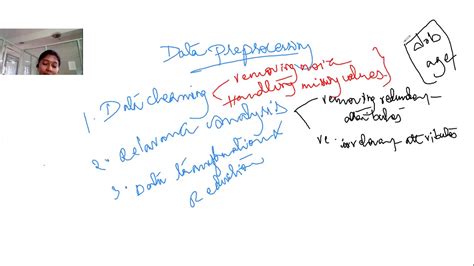 Data Preprocessing
1. Data cleaning
removing noise
handling missing values
2. Relevance analysis
removing redundant
attributes
re. irrelevant attributes
3. Data transformation &
Reduction
dob
age